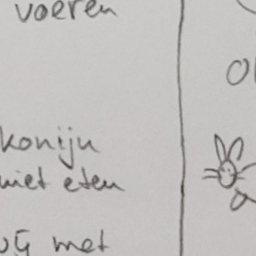 voeren
konijn
niet eten
met